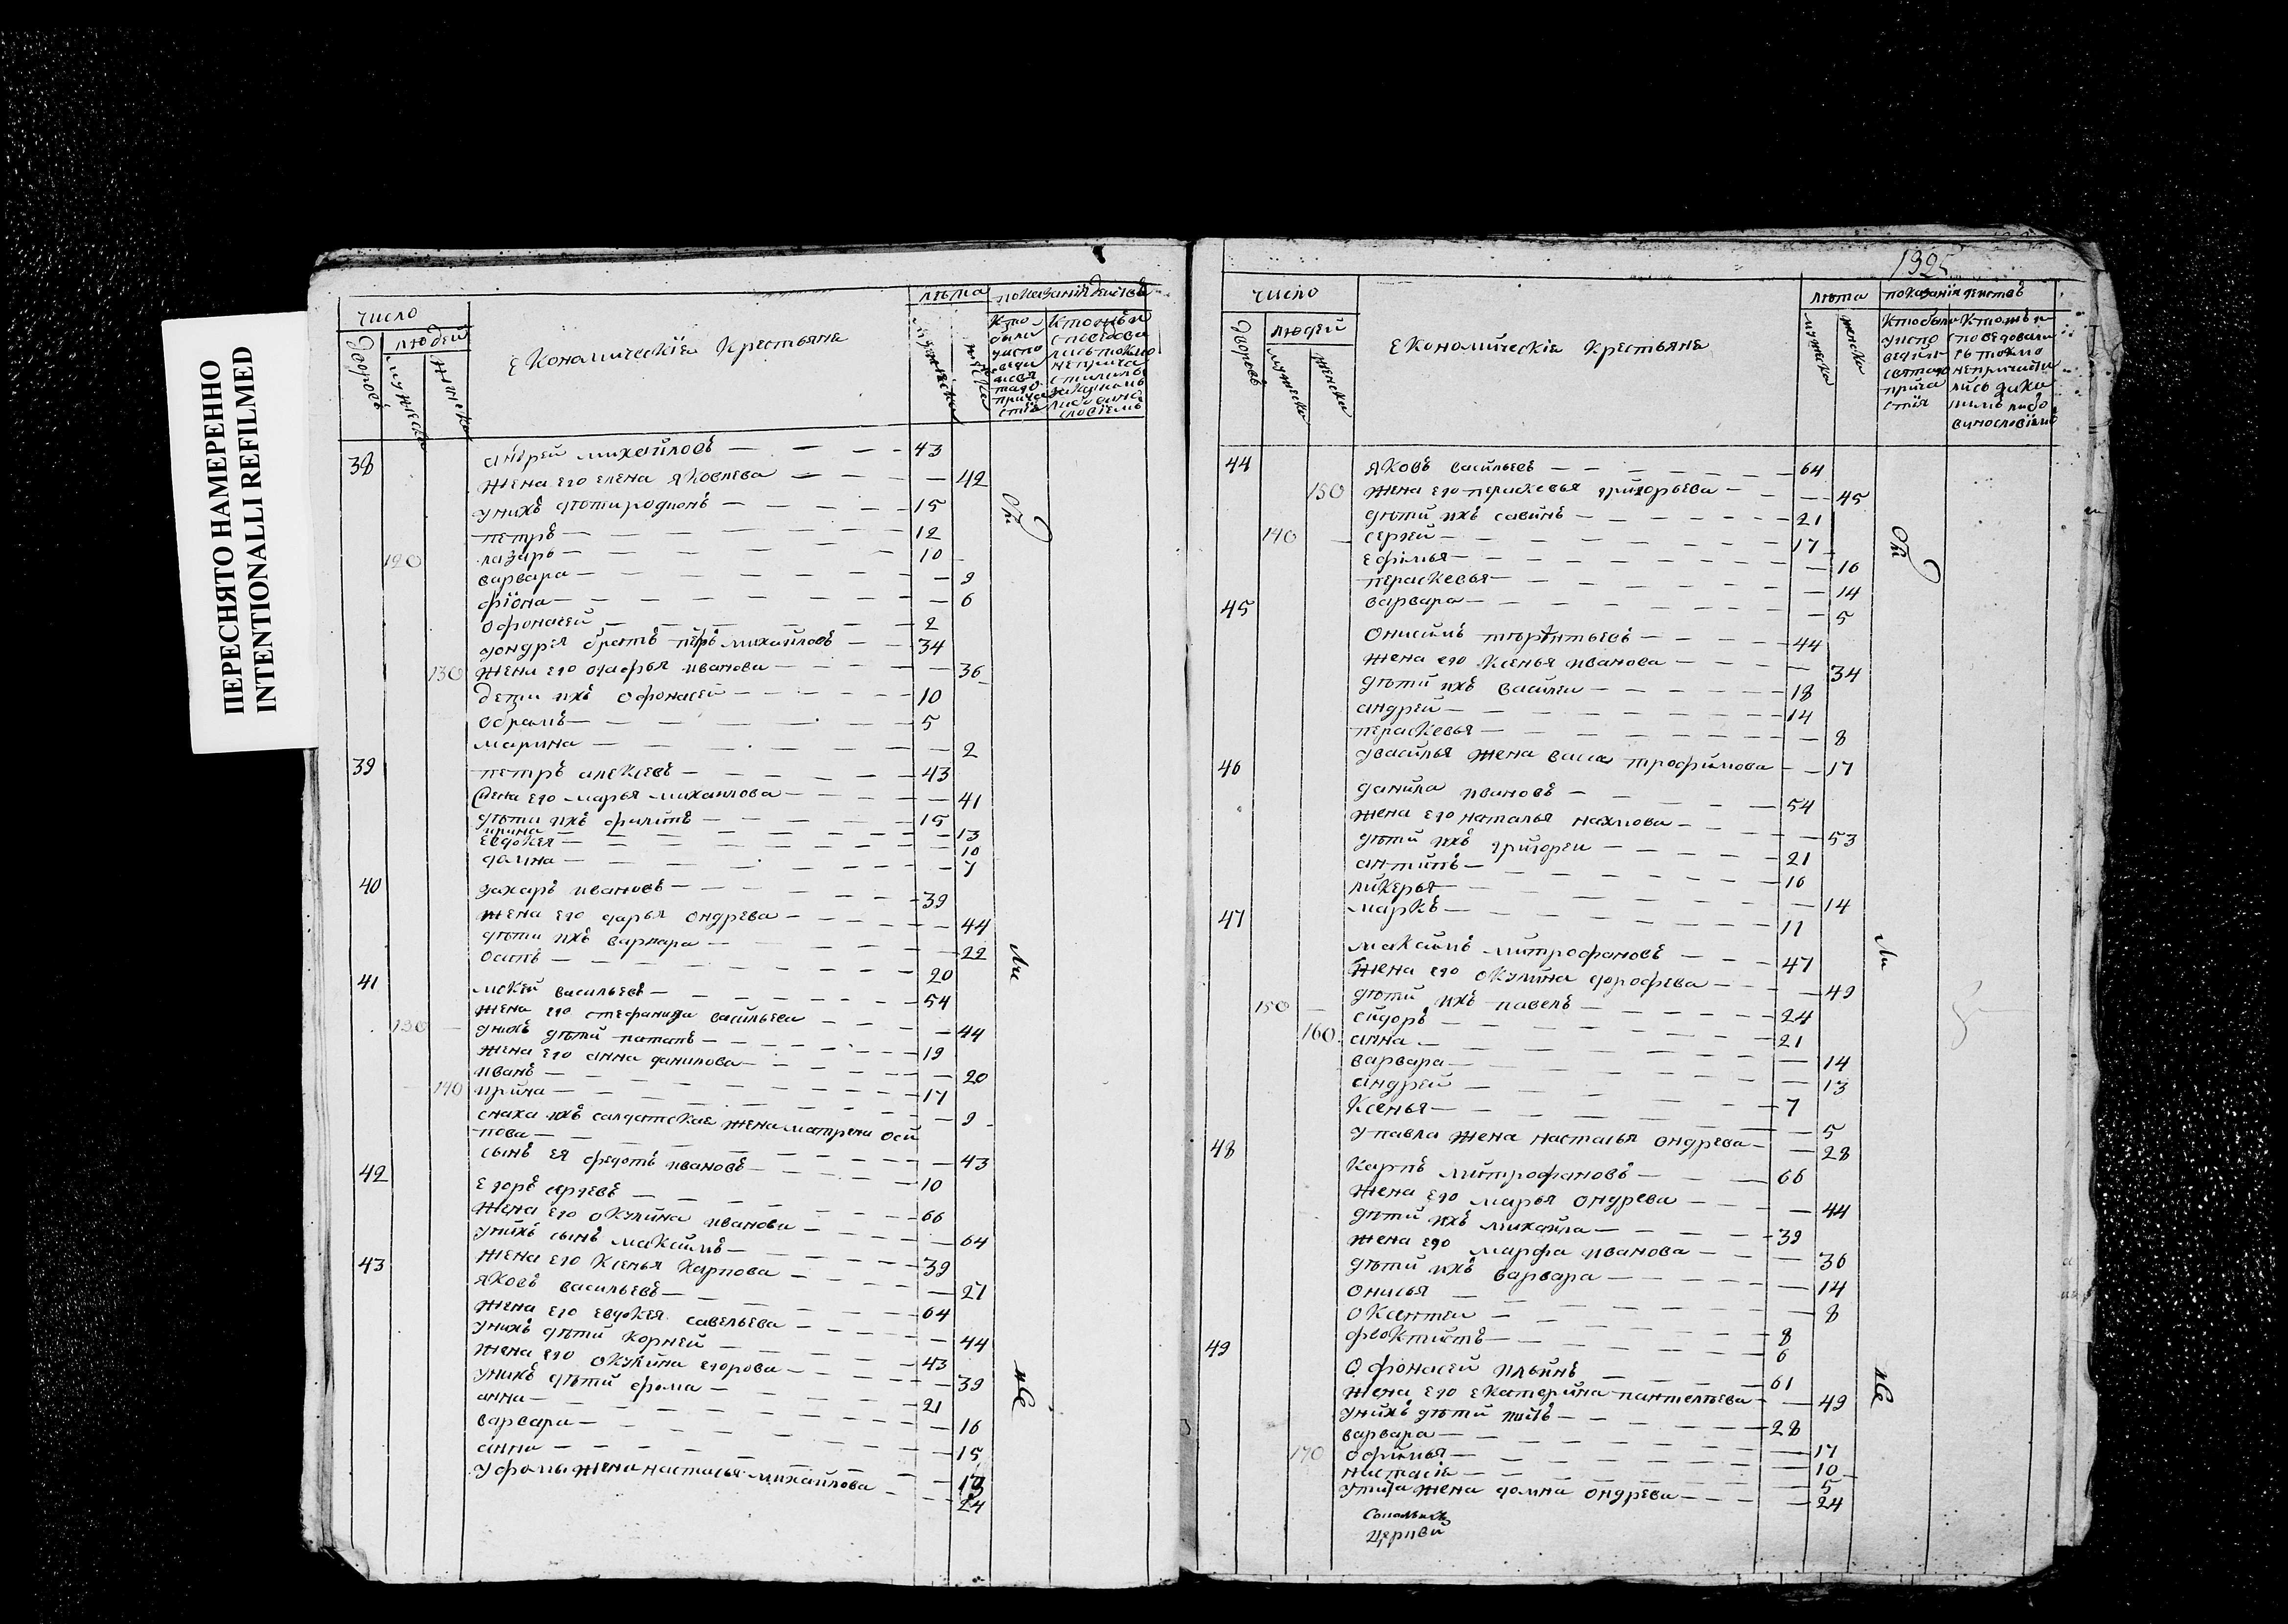 ПЕРЕСНЯТО НАМЕРЕННО
INTENTIONALLI REFILMED
число
дворовъ
людей
мужеска
женска
Економическїе Крестьяне
лѣта
мужеска
женска
показанїя действъ
38
андрей михайловъ 43
жена его елена яковлева 42
унихъ дѣти родионъ 15
петръ 12
120
лазарь 10
варвара 9
фїона 6
офонасей 2
братъ михайловъ 34
130
жена его огафья иванова 36
дети ихъ офонасей 10
обрамъ 5
марина 2
39
петръ алексеевъ 43
жена его марья михаилова 41
дѣти ихъ филипъ 15
ирина 13
евдокея 10
домна 7
40
захаръ ивановъ 39
жена его дарья ондрева 44
дѣти ихъ варвара 22
осипъ 20
41
мокей васильевъ 54
жена его стефанида васильева 44
130
унихъ дѣти потапъ 19
жена его анна данилова 20
иванъ 17
140
ирина 9
снаха ихъ салдатская жена матрена оси
пова 43
сынъ ея федотъ ивановъ 10
42
егоръ сергеевъ 66
жена его окулина иванова 64
унихъ сынъ максимъ 39
жена его ксенья карпова 27
43
яковъ васильевъ 64
жена его евдокея савельева 44
унихъ дѣти корней 43
жена его окулина егорова 39
унихъ дѣти фома 21
анна 16
варвара 15
анна 13
уфомы жена настасья михайлова 24
число
дворовъ
людей
мужеска
женска
Економическїе Крестьяне
лѣта
мужеска
женска
показанїя действъ
44
яковъ васильевъ 64
150
жена его перасковья григорьева 45
дѣти ихъ савинъ 21
140
сергей 17
ефимья 16
перасковья 14
варвара 5
45
онисимъ терентьевъ 44
жена его ксенья иванова 34
дѣти ихъ василеи 18
андрей 14
перасковья 8
увасилья жена васса трофимова 17
46
данила ивановъ 54
жена его наталья наумова 53
дѣти ихъ григореи 21
антипъ 16
ликерья 14
маркъ 11
47
максимъ митрофановъ 47
жена его окулина дорофева 49
150
дѣти ихъ павелъ 24
сидоръ 21
160
анна 14
варвара 13
андрей 7
ксенья 5
упавла жена настасья ондрева 28
48
карпъ митрофановъ 66
жена его марья ондрева 44
дѣти ихъ михайла 39
жена его марфа иванова 36
дѣти ихъ варвара 14
онисья 8
оксентеи 8
феоктистъ 6
49
офонасей ильинъ 61
жена его екатерина пантелѣева 49
унихъ дѣти титъ 28
варвара 17
170
офимья 10
настасїя 5
утита жена домна ондрева 24